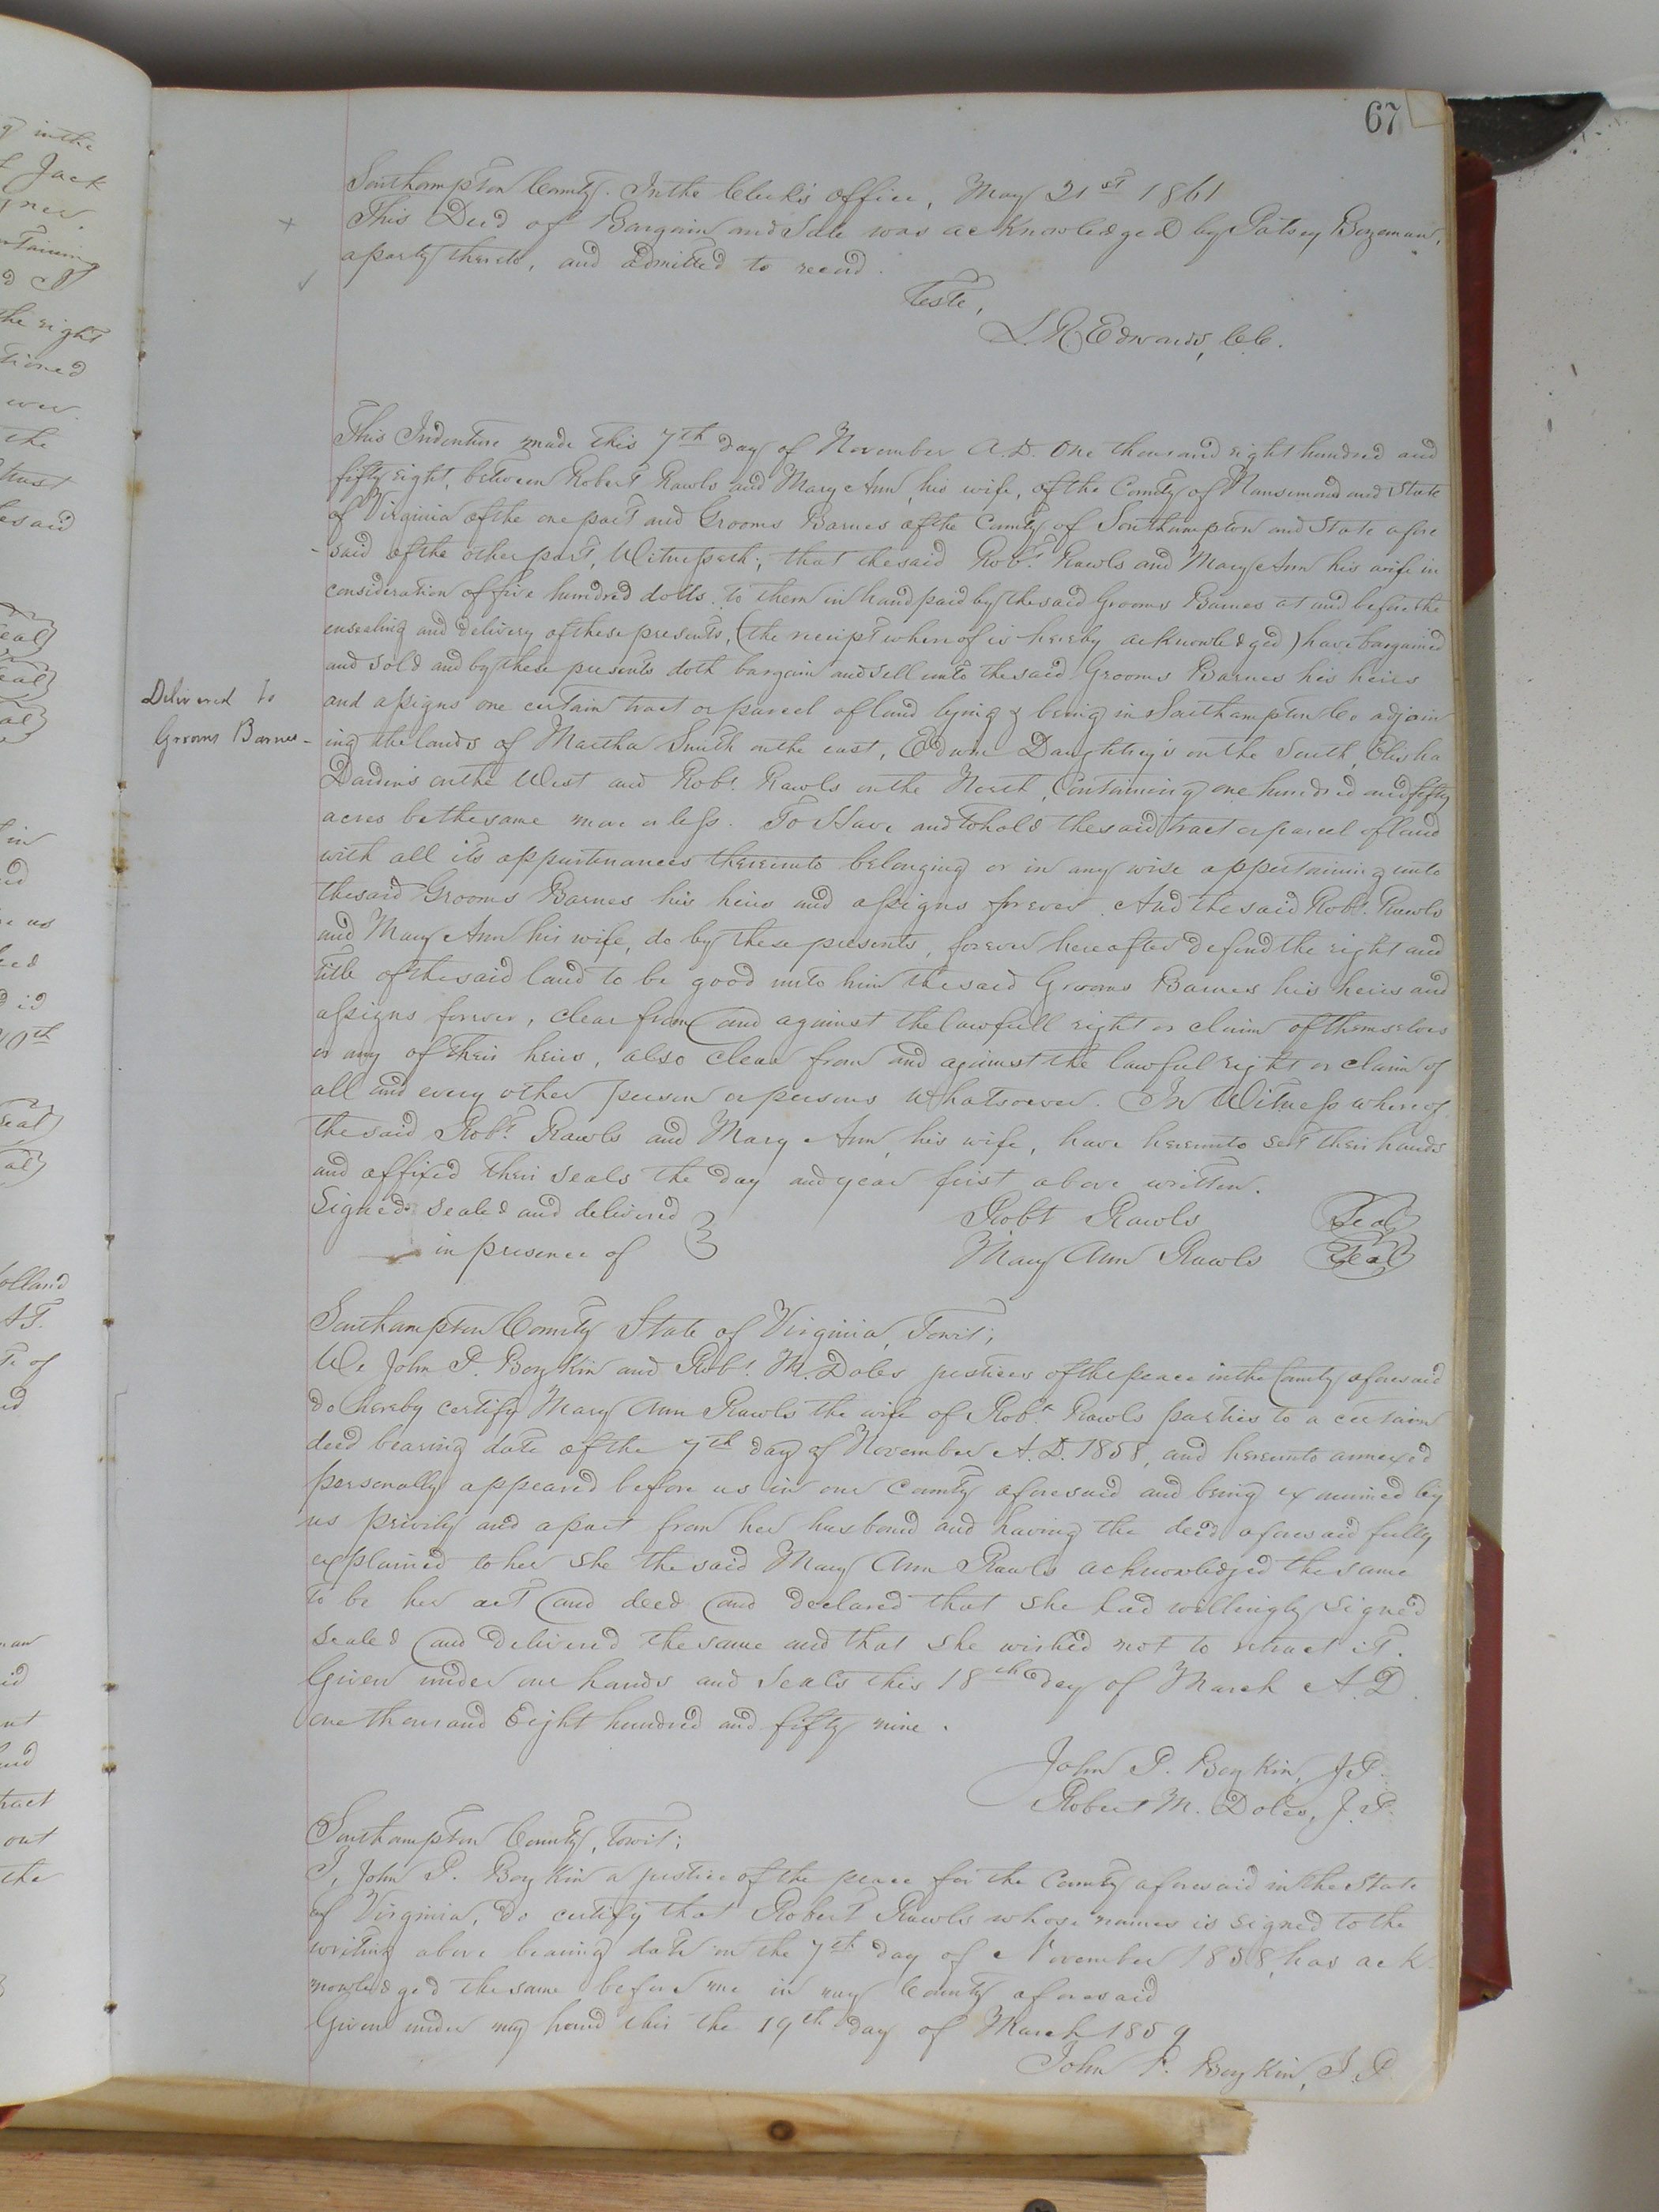 67
Southampton County. In the Clerk's office, May 21st 1861
This Deed of Bargain and Sale was acknowledged by Patsey Bozeman,
a party thereto, and admitted to record.
Teste,
L. R. Edwards, C.C.
This Indenture made this 7th day of November A.D. One thousand eight hundred and
fifty eight, between Robert Rawls and Mary Ann, his wife, of the County of Nansemond and State
of Virginia of the one part and Grooms Barnes of the County of Southampton and State afore
-said of the other part, Witnesseth; that the said Robt. Rawls and Mary Ann his wife in
consideration of five hundred dolls. to them in hand paid by the said Grooms Barnes at and before the
ensealing and delivery of these presents, (the receipt whereof is hereby acknowledged) have bargained
and sold and by these presents doth bargain and sell unto the said Grooms Barnes his heirs
and assigns one certain tract or parcel of land lying & being in Southampton Co adjoin
Delivered to
Grooms Barnes -
ing the lands of Martha Smith on the east, Edwin Daughtrey's on the South, Elisha
Darden's on the West and Robt. Rawls on the North, Containing one hundred and fifty
acres be the same more or less. To Have and to hold the said tract or parcel of land
with all its appurtenances thereunto belonging or in any wise appertaining unto
the said Grooms Barnes his heirs and assigns forever. And the said Robt. Rawls
and Mary Ann his wife, do by these presents, forever hereafter defend the right and
title of the said land to be good unto him the said Grooms Barnes his heirs and
assigns forever, clear from and against the lawfull right or claim of themselves
or any of their heirs, also clear from and against the lawful right or claim of
all and every other person or persons whatsoever. In Witness whereof
the said Robt. Rawls and Mary Ann, his wife, have hereunto set their hands
and affixed their seals the day and year first above written.
Signed sealed and delivered
in presence of
Robt Rawls Seal
Mary Ann Rawls Seal
Southampton County State of Virginia, Towit;
We John P. Boykin and Robt. M. Doles justices of the peace in the County aforesaid
do hereby certify Mary Ann Rawls the wife of Robt. Rawls parties to a certain
deed bearing date of the 7th day of November A.D. 1858, and hereunto annexed
personally appeared before us in our County aforesaid and being examined by
us privily and apart from her husband and having the deed aforesaid fully
explained to her she the said Mary Ann Rawls acknowledged the same
to be her act and deed and declared that she had willingly signed
sealed and delivered the same and that she wished not to retract it.
Given under our hands and seals this 18th day of March A.D.
one thousand Eight hundred and fifty nine.
John P. Boykin, J.P.
Robert M. Doles, J.P.
Southampton County, Towit;
I, John P. Boykin a justice of the peace for the County aforesaid in the State
of Virginia, do certify that Robert Rawls whose names is signed to the
writing above bearing date on the 7th day of November 1858, has ack-
nowledged the same before me in my County aforesaid
Given under my hand this the 19th day of March 1859
John P. Boykin, J.P.